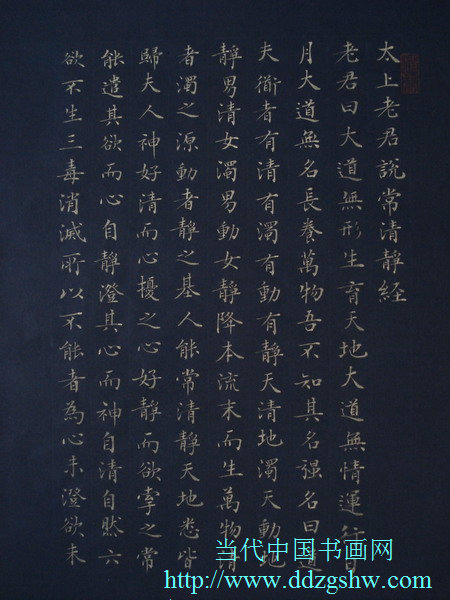 太上老君說常清靜經
老君曰大道無形生育天地大道無情運行日
月大道無名長養萬物吾不知其名强名曰道
夫衟者有清有濁有動有靜天清地濁天動地
靜男清女濁男動女靜降本流末而生萬物清
者濁之源動者靜之基人能常清靜天地悉皆
歸夫人神好清而心擾之心好靜而欲牽之常
能遣其欲而心自靜澄其心而神自清自然六
欲不生三毒消滅所以不能者為心未澄欲未
当代中国书画网
http://www.ddzgshw.com